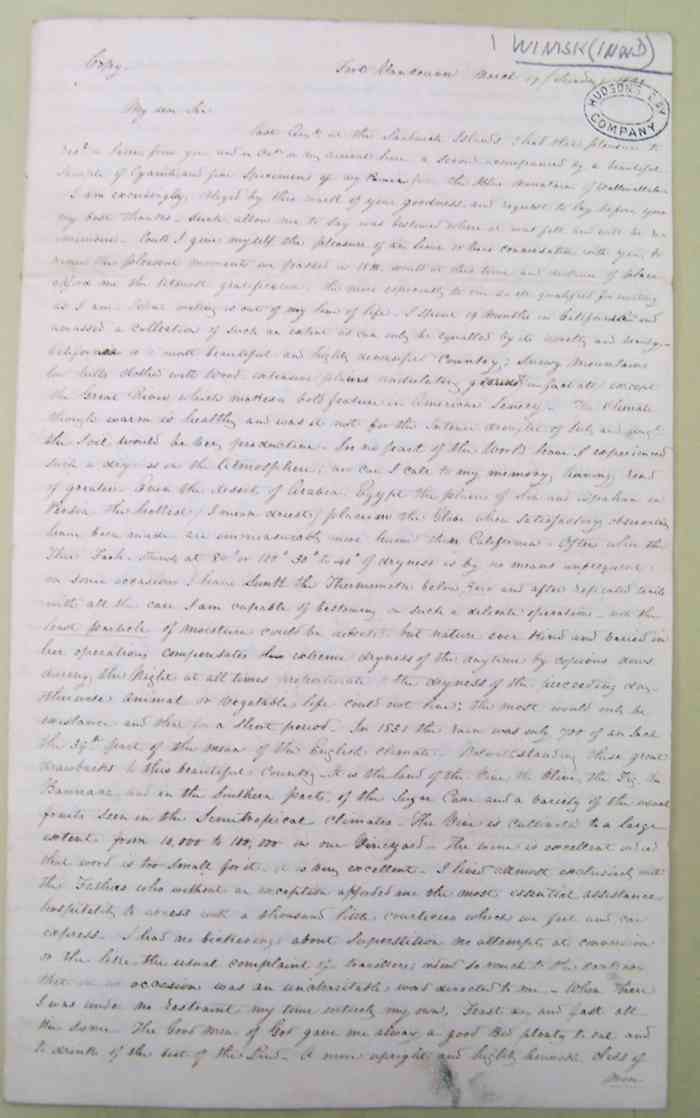 1 WINISK (INWD)
Copy
HUDSON'S BAY COMPANY
My dear Sir
Last at the Sandwich Islands I had the pleasure to
a letter from you and in Oct. on my arrival here a second accompanied by a beautiful
Sample of and fine Specimens of my from the Blue Mountains of Wallawallah
I am exceedingly obliged by this mark of your goodness and request to lay before you
my best thanks - allow me to say was bestowed where it was felt and will be
Could I give myself the pleasure of an hour or two's conversation with you, to
the pleasant moments we passed in would at this time and distance of place
afford me the utmost gratification. the more especially to one so ill qualified for writing
as I am. writing is out of my line of life. I spent 19 months in California and
amassed a collection of such an extent as can only be equalled by its novelty and beauty
California is a most beautiful and highly diversified Country; Snowy Mountains
low hills clothed with Wood, extensive plains undulating grounds in fact all except
the Great River which makes a bold feature in American Scenery - The Climate
though warm is healthy and was it not for the intense drought of July and Augt
the Soil would be very productive. In no part of the World have I experienced
such a dryness in the Atmosphere; nor can I call to my memory, having read
of greater. Even the desert of Arabia, Egypt the plains of and Ispahan in
Persia the hottest (I mean driest) places on the Globe where satisfactory observations
have been made are immeasurably more humid than California - Often when the
Ther Fach. stands at 80° or 100° 30° to 40° of dryness is by no means unfrequent.
on some occasions I have sunk the Thermometer below Zero and after repeated trials
with all the care I am capable of bestowing on such a delicate operation - not the
least particle of moisture could be detected, but nature ever kind and varied in
her operations compensates the extreme dryness of the daytime by copious dews
during the Night at all times proportionate to the dryness of the preceding day -
otherwise animal or vegetable life could not live; the most would only be
existence and that for a short period - In 1831 the rain was only of an Inch
the 39th part of the mean of the English climate - Notwithstanding these great
drawbacks to this beautiful Country - It is the land of the Vine, the Olive, the Fig, the
Banana, and in the Southern parts, of the Sugar Cane and a variety of the usual
fruits seen in the Semitropical climates - The Vine is cultivated to a large
extent from 10,000 to 100,000 in one Vineyard - The wine is excellent indeed
that word is too small for it, it is very excellent - I lived almost exclusively with
the Fathers who without an exception afforded me the most essential assistance,
hospitality to excess with a thousand little courtesies which we feel and can
express - I had no bickerings about Superstition no attempts at conversion
or the like, the usual complaint of travellers; indeed so much to the contrary
that on no occasion was an uncharitable word directed to me - When there
I was under no restraint, my time entirely my own, Feast day and fast all
the same - The Good Men of God gave me always a good Bed plenty to eat and
to drink of the best of the Land - A more upright and highly honourable Class of
Men